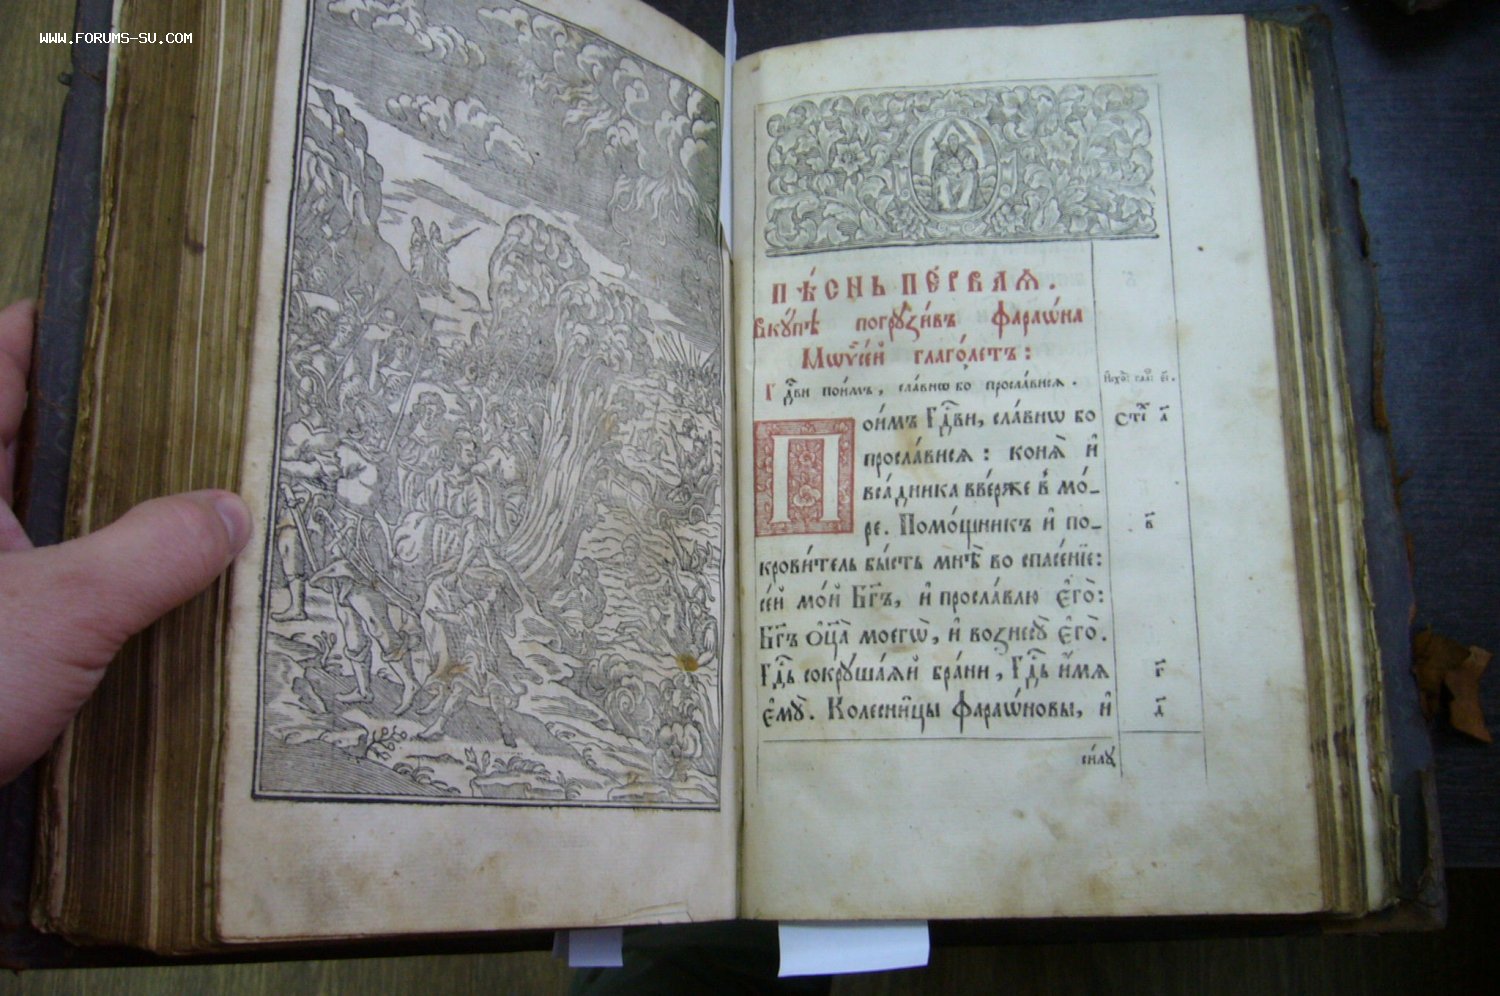 WWW.FORUMS-SU.COM
Пѣ́снь пе́рваѧ.
Вкꙋ́пѣ погрꙋзи́въ фараѡ́на
Мѡѷсе́й глаго́летъ:
Гдⷭ҇ви пои́мъ, сла́внѡ бо просла́висѧ.
Исхо́: гла: є҃і.
Пои́мъ Гдⷭ҇ви, сла́внѡ бо
Сті́х а҃
просла́висѧ: конѧ̀ и҆
вса́дника вве́рже в̾ мо́-
ре. Помо́щникъ и҆ по-
в҃
крови́тель бы́сть мнѣ̀ во спасе́нїе:
се́й мо́й Бг҃ъ, и҆ просла́влю є҆го̀:
Бг҃ъ ѻ҆ц҃а̀ моегѡ̀, и҆ вознесꙋ̀ є҆го̀.
Гдⷭ҇ь сокрꙋша́ѧй бра́ни, Гдⷭ҇ь и҆́мѧ
г҃
є҆мꙋ̀. Колесни́цы фараѡ́новы, и҆
д҃
си́лꙋ